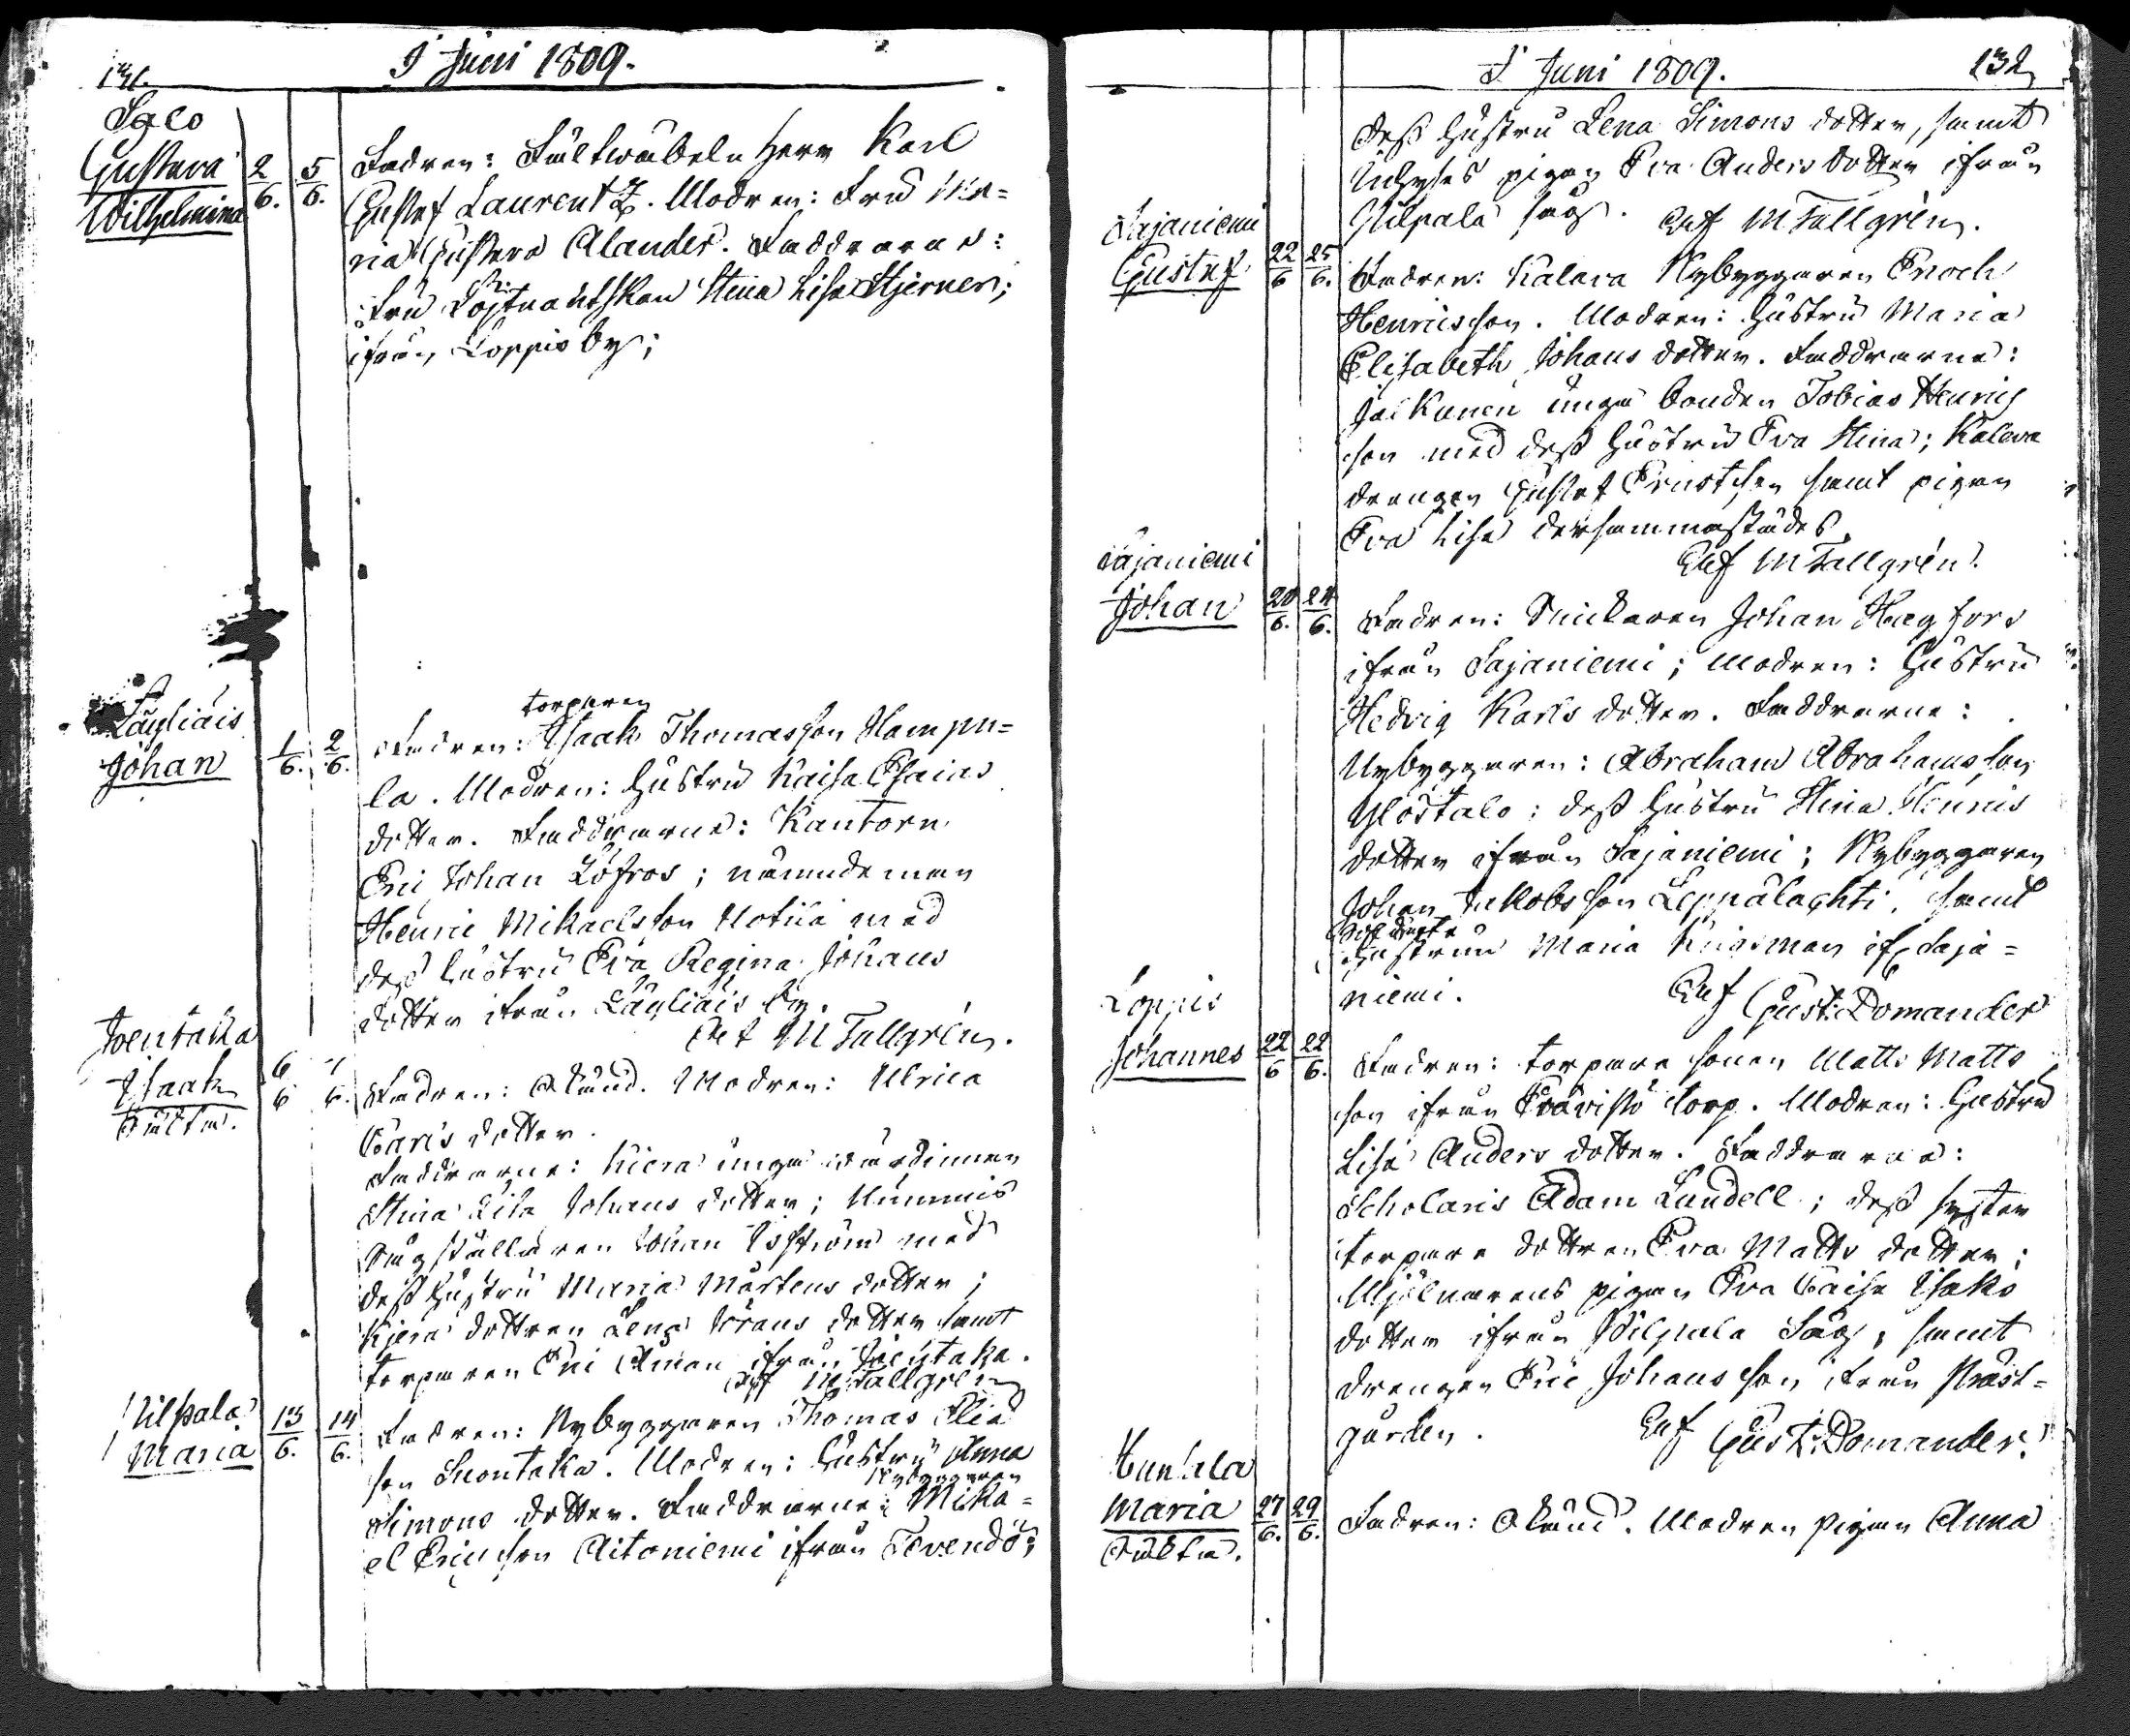 131.
I Juni 1809.
Saco
Gustava
Wilhelmina
2/6. 5/6.
Fadren: Fältwäbeln Herr Karl
Gustaf Laurentz. Modren: Fru Ma=
ria Gustava Alander. Faddrarne:
Fru Löjtnantskan Stina Lisa Stjerner;
ifrån Loppis by;
Läyliäis
Johan
1/6. 2/6.
torparen
Fadren: Isaak Thomasson Hampu=
la. Modren: Hustru Kaisa Esaias
dotter. Faddrarne: Kantorn
Eric Johan Löfros; nämndeman
Henric Mikaelsson Notila med
dess hustru Eva Regina Johans
dotter ifrån Läyliäis by.
Def M Tallgrén.
Joentaka
Isaak
6/6
Fadren: Okänd. Modren: Ulrica
Carls dotter.
Faddrarne: Kiera unga värdinnan
Stina Lisa Johans dotter; Nummis
Sågställaren Johan Löfström med
dess Hustru Maria Mårtens dotter;
Kjera dottren Lena Johans dotter samt
torparen Eric Åman ifrån Joentaka.
Def M Tallgrén
Pilpala
Maria
13/6. 14/6.
Fadren: Nybyggaren Thomas Elia
son Suontaka. Modren: Hustru Anna
Nybyggaren
Simons dotter. Faddrarne: Mika=
el Ericsson Aitoniemi ifrån Tevendö;
I Juni 1809.
132
dess Hustru Lena Simons dotter, samt
pigan Eva Anders dotter ifrån
Pilpala såg. Def M Tallgrén.
Sajaniemi
Gustaf
22/6 25/6.
Fadren: Kalava Nybyggaren Enoch
Henricsson. Modren: Hustru Maria
Elisabeth Johans dotter. Faddrarne:
Jalkanen unga bonden Tobias Henrics
son med dess Hustru Eva Stina; Kaleva
drängen Gustaf Ernstson samt pigan
Eva Lisa dersammastädes.
Def M Tallgrén.
Sajaniemi
Johan
20/6. 24/6.
Fadren: Snickaren Johan Hagfors
ifrån Sajaniemi; Modren: Hustru
Hedvig Karls dotter. Faddrarne:
Nybyggaren: Abraham Abrahamsson
Ylöstalo; dess Hustru Stina Henrics
dotter ifrån Sajaniemi; Nybyggaren
Johan Jakobsson Leppälachti, samt
Soldats
Hustrun Maria Krigsman if. Saja=
niemi.
Def Gust: Domander
Loppis
Johannes
22/6 22/6.
Fadren: torpare sonen Matts Matts
son ifrån torp. Modren: Hustru
Lisa Anders dotter. Faddrarne:
Scholaris Adam Lundell; dess syster
torpare dottren Eva Matts dotter;
Mjölnarens pigan Eva Caisa Isaks
dotter ifrån Pilpala Såg, samt
drängen Eric Johansson ifrån Präst=
gården.
Def Gust: Domander.
Hunsala
Maria
27/6. 29/6.
Fadren: Okänd. Modren pigan Anna